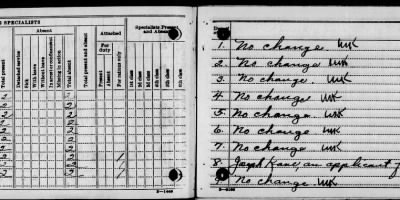 SPECIALISTS
Absent
Attached
Specialists Present and Absent
For duty
Total present
Detached service
Sick
With leave
Without leave
In arrest or confinement
Missing in action
Total absent
Total present and absent
Present
Absent
For rations only
1st class
2d class
3d class
4th class
5th class
6th class
2
2
2
2
2
2
2
2
1. No change. MK
2. No change. MK
3. No change. MK
4. No change MK
5. No change. MK
6. No change. MK
7. No change. MK
8. Joseph Kane, an applicant f
9. No change MK